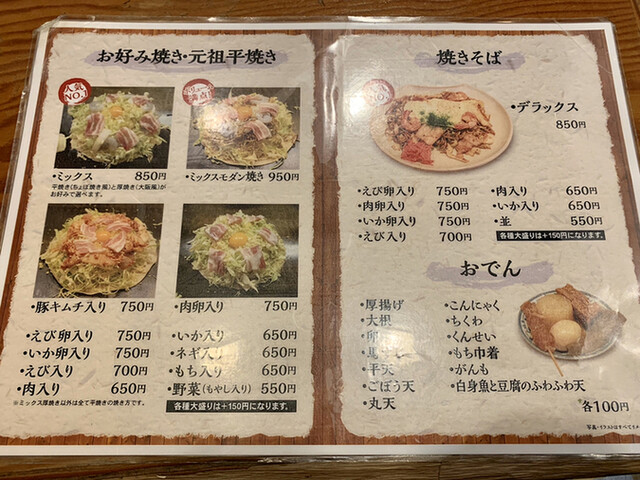 お好み焼き・元祖平焼き
人気
NO.1
・ミックス 850円
平焼き(ちょぼ焼き風)と厚焼き(大阪風)が
お好みで選べます。
・ミックスモダン焼き 950円
・豚キムチ入り 750円
・肉卵入り 750円
・えび卵入り 750円
・いか卵入り 750円
・えび入り 700円
・肉入り 650円
※ミックス厚焼き以外は全て平焼きの焼き方です。
・いか入り 650円
・ネギ入り 650円
・もち入り 650円
・野菜(もやし入り) 550円
各種大盛りは+150円になります。
焼きそば
人気
NO.1
・デラックス
850円
・えび卵入り 750円
・肉卵入り 750円
・いか卵入り 750円
・えび入り 700円
・肉入り 650円
・いか入り 650円
・並 550円
各種大盛りは+150円になります。
おでん
・厚揚げ
・大根
・卵
・平天
・ごぼう天
・丸天
・こんにゃく
・ちくわ
・くんせい
・もち巾着
・がんも
・白身魚と豆腐のふわふわ天
各100円
写真・イラストはすべて